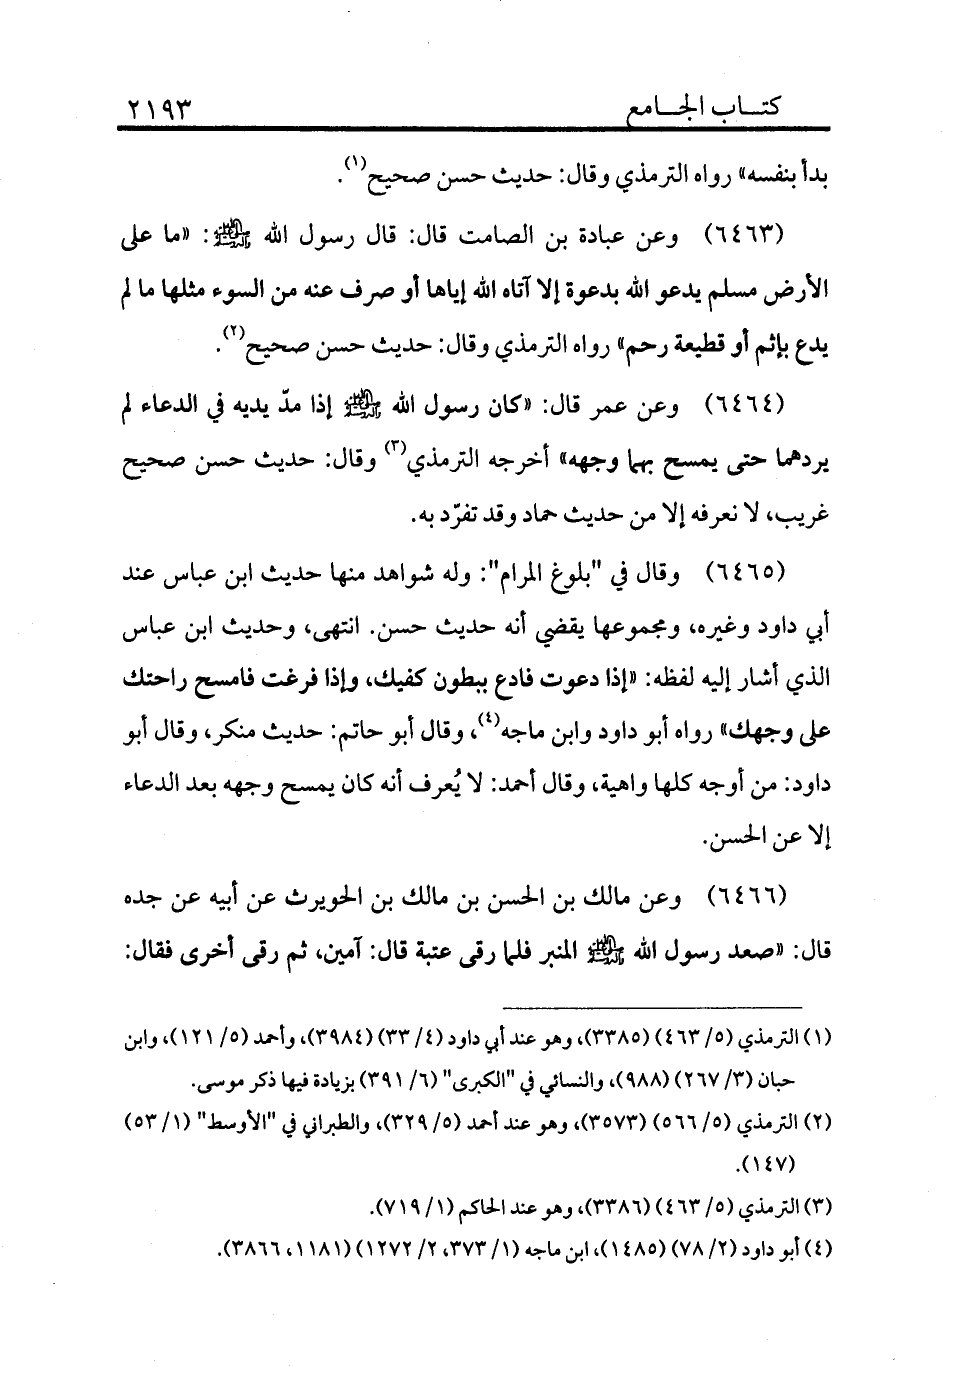 كتـــاب الجـــامع ٢١٩٣
بدأ بنفسه» رواه الترمذي وقال: حديث حسن صحيح(١).
(٦٤٦٣) وعن عبادة بن الصامت قال: قال رسول الله ﷺ: «ما على
الأرض مسلم يدعو الله بدعوة إلا آتاه الله إياها أو صرف عنه من السوء مثلها ما لم
يدع بإثم أو قطيعة رحم» رواه الترمذي وقال: حديث حسن صحيح(٢).
(٦٤٦٤) وعن عمر قال: «كان رسول الله ﷺ إذا مدّ يديه في الدعاء لم
يردهما حتى يمسح بهما وجهه» أخرجه الترمذي(٣) وقال: حديث حسن صحيح
غريب، لا نعرفه إلا من حديث حماد وقد تفرّد به.
(٦٤٦٥) وقال في "بلوغ المرام": وله شواهد منها حديث ابن عباس عند
أبي داود وغيره، ومجموعها يقضي أنه حديث حسن. انتهى، وحديث ابن عباس
الذي أشار إليه لفظه: «إذا دعوت فادع ببطون كفيك، وإذا فرغت فامسح راحتك
على وجهك» رواه أبو داود وابن ماجه(٤)، وقال أبو حاتم: حديث منكر، وقال أبو
داود: من أوجه كلها واهية، وقال أحمد: لا يُعرف أنه كان يمسح وجهه بعد الدعاء
إلا عن الحسن.
(٦٤٦٦) وعن مالك بن الحسن بن مالك بن الحويرث عن أبيه عن جده
قال: «صعد رسول الله ﷺ المنبر فلما رقى عتبة قال: آمين، ثم رقى أخرى فقال:
(١) الترمذي (٥/ ٤٦٣) (٣٣٨٥)، وهو عند أبي داود (٤/ ٣٣) (٣٩٨٤)، وأحمد (٥/ ١٢١)، وابن
حبان (٣/ ٢٦٧) (٩٨٨)، والنسائي في "الكبرى" (٦/ ٣٩١) بزيادة فيها ذكر موسى.
(٢) الترمذي (٥/ ٥٦٦) (٣٥٧٣)، وهو عند أحمد (٥/ ٣٢٩)، والطبراني في "الأوسط" (١/ ٥٣)
(١٤٧).
(٣) الترمذي (٥/ ٤٦٣) (٣٣٨٦)، وهو عند الحاكم (١/ ٧١٩).
(٤) أبو داود (٢/ ٧٨) (١٤٨٥)، ابن ماجه (١/ ٣٧٣، ٢/ ١٢٧٢) (١١٨١، ٣٨٦٦).